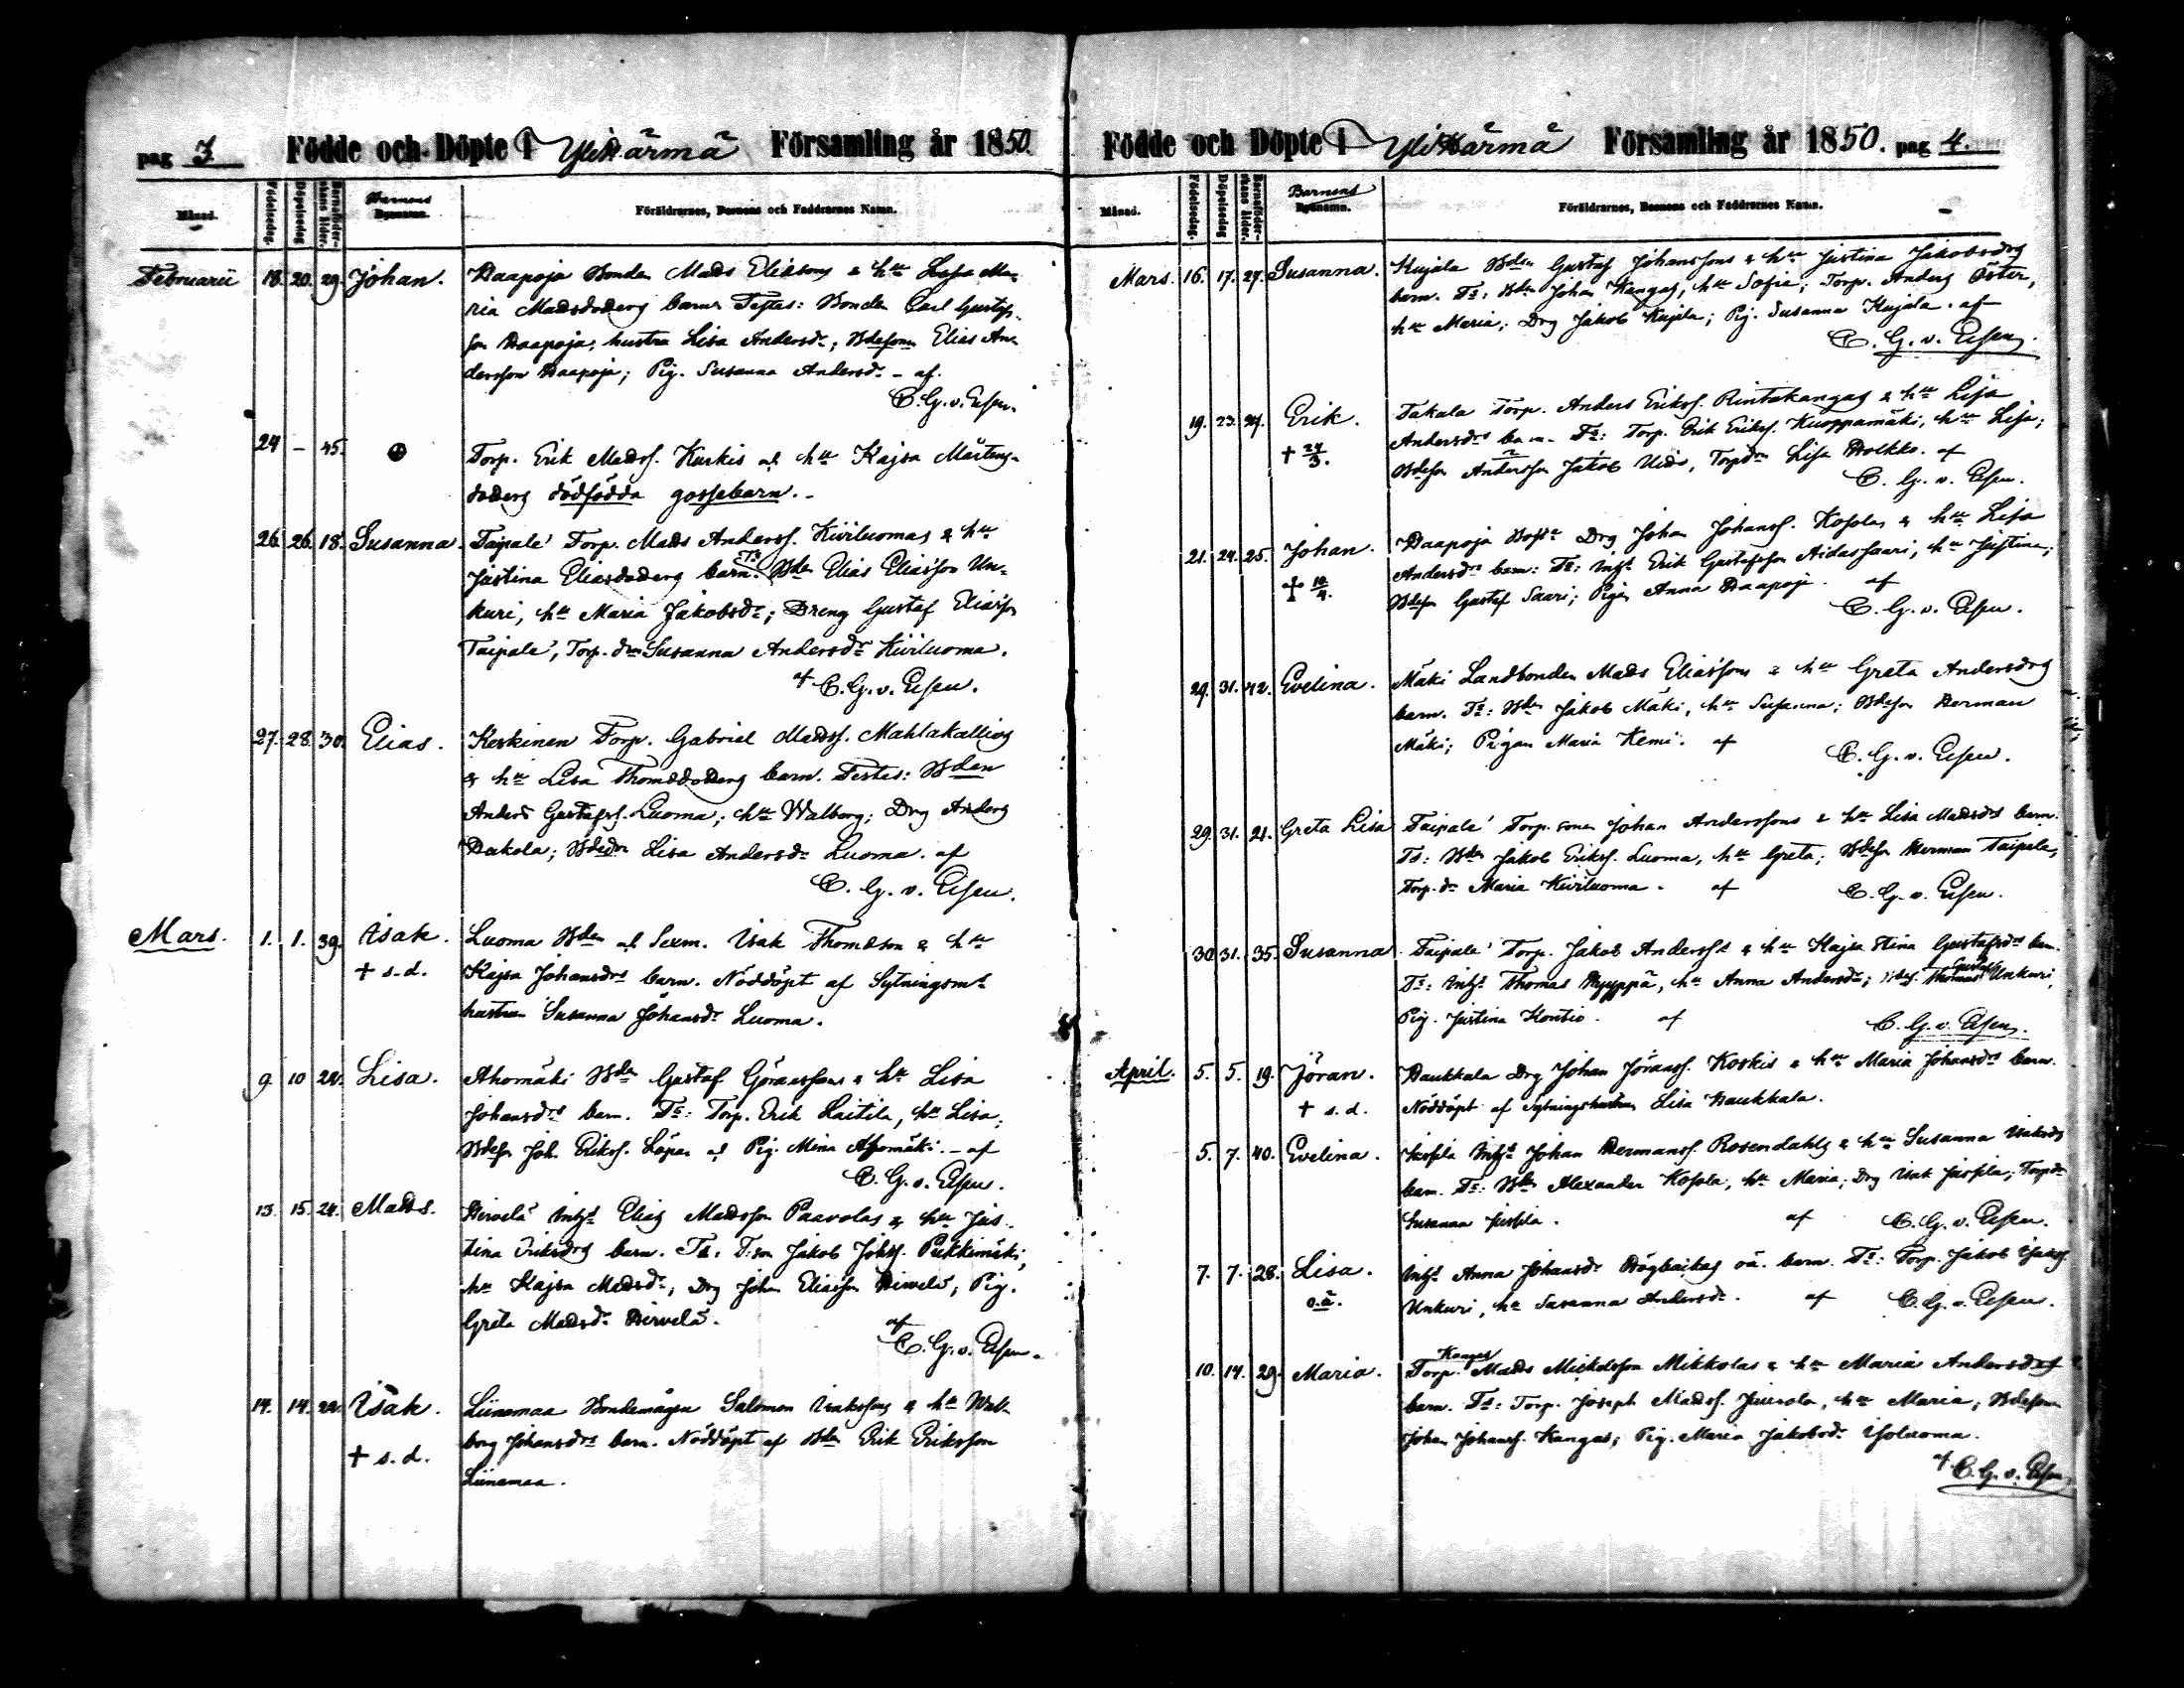 pag 3 Födde och Döpte i Ylihärmä Församling år 1850.
Månad. Födelsedag. Döpelsedag Barnaföderskans ålder. Barnens Byanamn. Föräldrarnes, Barnens och Faddrarnes Namn.
Februarii 18. 20. 29. Johan. Haapoja Bonden Mads Eliksons & hu Lisa Ma-
ria Madsdoters barn Testes: Bonden Carl Gustafs-
son Haapoja, hustru Lisa Andersdr; Bdesonen Elias An-
dersson Haapoja; Pig. Susanna Andersdr - af.
C. G. v. Essen.
24 - 45. Torp. Erik Madss. Kurkis och hu Kajsa Mårtens-
doters dödfödda gossebarn. -
26. 26. 18. Susanna. Taipale Torp. Mads Anderss. Kiviluomas & hu
Justina Eliasdoters barn. Ts Bden Elias Eliasson Un-
kuri, hu Maria Jakobsdr; Dreng Gustaf Eliasson
Taipale, Torp. dr Susanna Andersdr Kiviluoma.
af C. G. v. Essen.
27. 28. 30. Elias. Keskinen Torp. Gabriel Madss. Mahlakallios
& hu Lisa Thomsdoters barn. Testes: Bden
Anders Gustafss. Luoma; hu Walborg; Drg Anders
Hakola; Bdedr Lisa Andersdr Luoma. af
C. G. v. Essen.
Mars. 1. 1. 39. Isak. Luoma Bden och Sexm. Isak Thomsson & hu
† s.d. Kajsa Johansdrs barn. Nöddöpt af Sytningsms
hustru Susanna Johansdr Luoma.
9. 10 Lisa. Ahomäki Bden Gustaf Göranssons & hu Lisa
Johansdrs barn. Ts: Torp. Erik Laitila, hu Lisa;
Bdeson Joh. Erikss. och Pig. Mina Ahomäki. - af
C. G. v. Essen.
13. 15. 24. Mads. Hirvelä Inhs Elias Madsson Paavolas & hu Jus-
tina Eriksdrs barn. Ts: Jakob Johss. Pukkimäki,
hu Kajsa Madsdr, Drg Johan Eliasson Hirvelä, Pig.
Greta Madsdr Hirvelä. af
C. G. v. Essen.
14. 14. Isak. Liinamaa Bondemågen Salomon Isakssons & hu Wal-
borg Johansdrs barn. Nöddöpt af Bden Erik Eriksson
† s.d. Liinamaa.
Födde och Döpte i Ylihärmä Församling år 1850. pag 4.
Månad. Födelsedag. Döpelsedag Barnaföderskans ålder. Barnens Byanamn. Föräldrarnes, Barnens och Faddrarnes Namn.
Mars. 16. 17. 27. Susanna. Kujala Bden Gustaf Johanssons & hu Justina Jakobsdrs
barn. Ts: Bden Johan Kangas, hu Sofia; Torp. Anders Öster,
hu Maria; Drg Jakob Kujala; Pig. Susanna Kujala. af
C. G. v. Essen.
19. 23. Erik. Takala Torp. Anders Erikss. Rintakangas & hu Lisa
† 24/3. Andersdrs barn. Ts: Torp. Erik Erikss. Kuoppamäki, hu Lisa;
Bdeson Andersson Jakob Torpdr Lisa af
C. G. v. Essen.
21. 24. 25. Johan. Haapoja Drg Johan Johanss. Kosolas & hu Lisa
† 10/4. Andersdrs barn: Ts: Inhs Erik Gustafsson Aidassaari, hu Justina;
Bdeson Gustaf Saari; Pigan Anna Haapoja. af
C. G. v. Essen.
29. 31. 42. Evelina. Mäki Landbonden Mads Eliassons & hu Greta Andersdrs
barn. Ts: Bden Jakob Mäki, hu Susanna; Bdeson Herman
Mäki; Pigan Maria Kemi. af C. G. v. Essen.
29. 31. 21. Greta Lisa Taipale Torp. sonen Johan Anderssons & hu Lisa Madsdrs barn.
Ts: Bden Jakob Erikss. Luoma, hu Greta; Bdeson Herman Taipale,
Torp. dr Maria Kiviluoma. af C. G. v. Essen.
30. 31. 35. Susanna. Taipale Torp. Jakob Anderss & hu Kajsa Stina Gustafsdrs barn.
Ts: Inhs Thomas Hyyppä, hu Anna Andersdr; Bdes. Thomas Gustafs Unkuri,
Pig. Justina Kontio. af C. G. v. Essen.
April. 5. 5. 19. Jöran. Haukkala Drg Johan Jöranss. Koskis & hu Maria Johansdrs barn.
† s.d. Nöddöpt af Sytningshustrun Lisa Haukkala.
5. 7. 40. Evelina. Jussila Inhs Johan Hermanss. Rosendahls & hu Susanna Isaksdrs
barn. Ts: Bden Alexander Kosola, hu Maria; Drg Isak Jussila; Torpdr
Susanna Jussila. af C. G. v. Essen.
7. 7. 28. Lisa. Inhs Anna Johansdr oä. barn. Ts: Torp. Jakob Isakss
o.ä. Unkuri, hu Susanna Andersdr. af C. G. v. Essen.
10. 14. 29. Maria. Kangas Torp. Mads Mickelsson Mikkolas & hu Maria Andersdrs
barn. Ts: Torp. Joseph Madss. Juurola, hu Maria; Bdesonen
Johan Johanss. Kangas; Pig. Maria Jakobsdr Isoluoma.
af C. G. v. Essen.